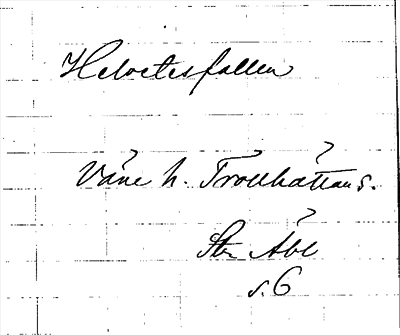 Helvetesfallen
Väne h. Trollhättans.
Str Åbl
s. 6